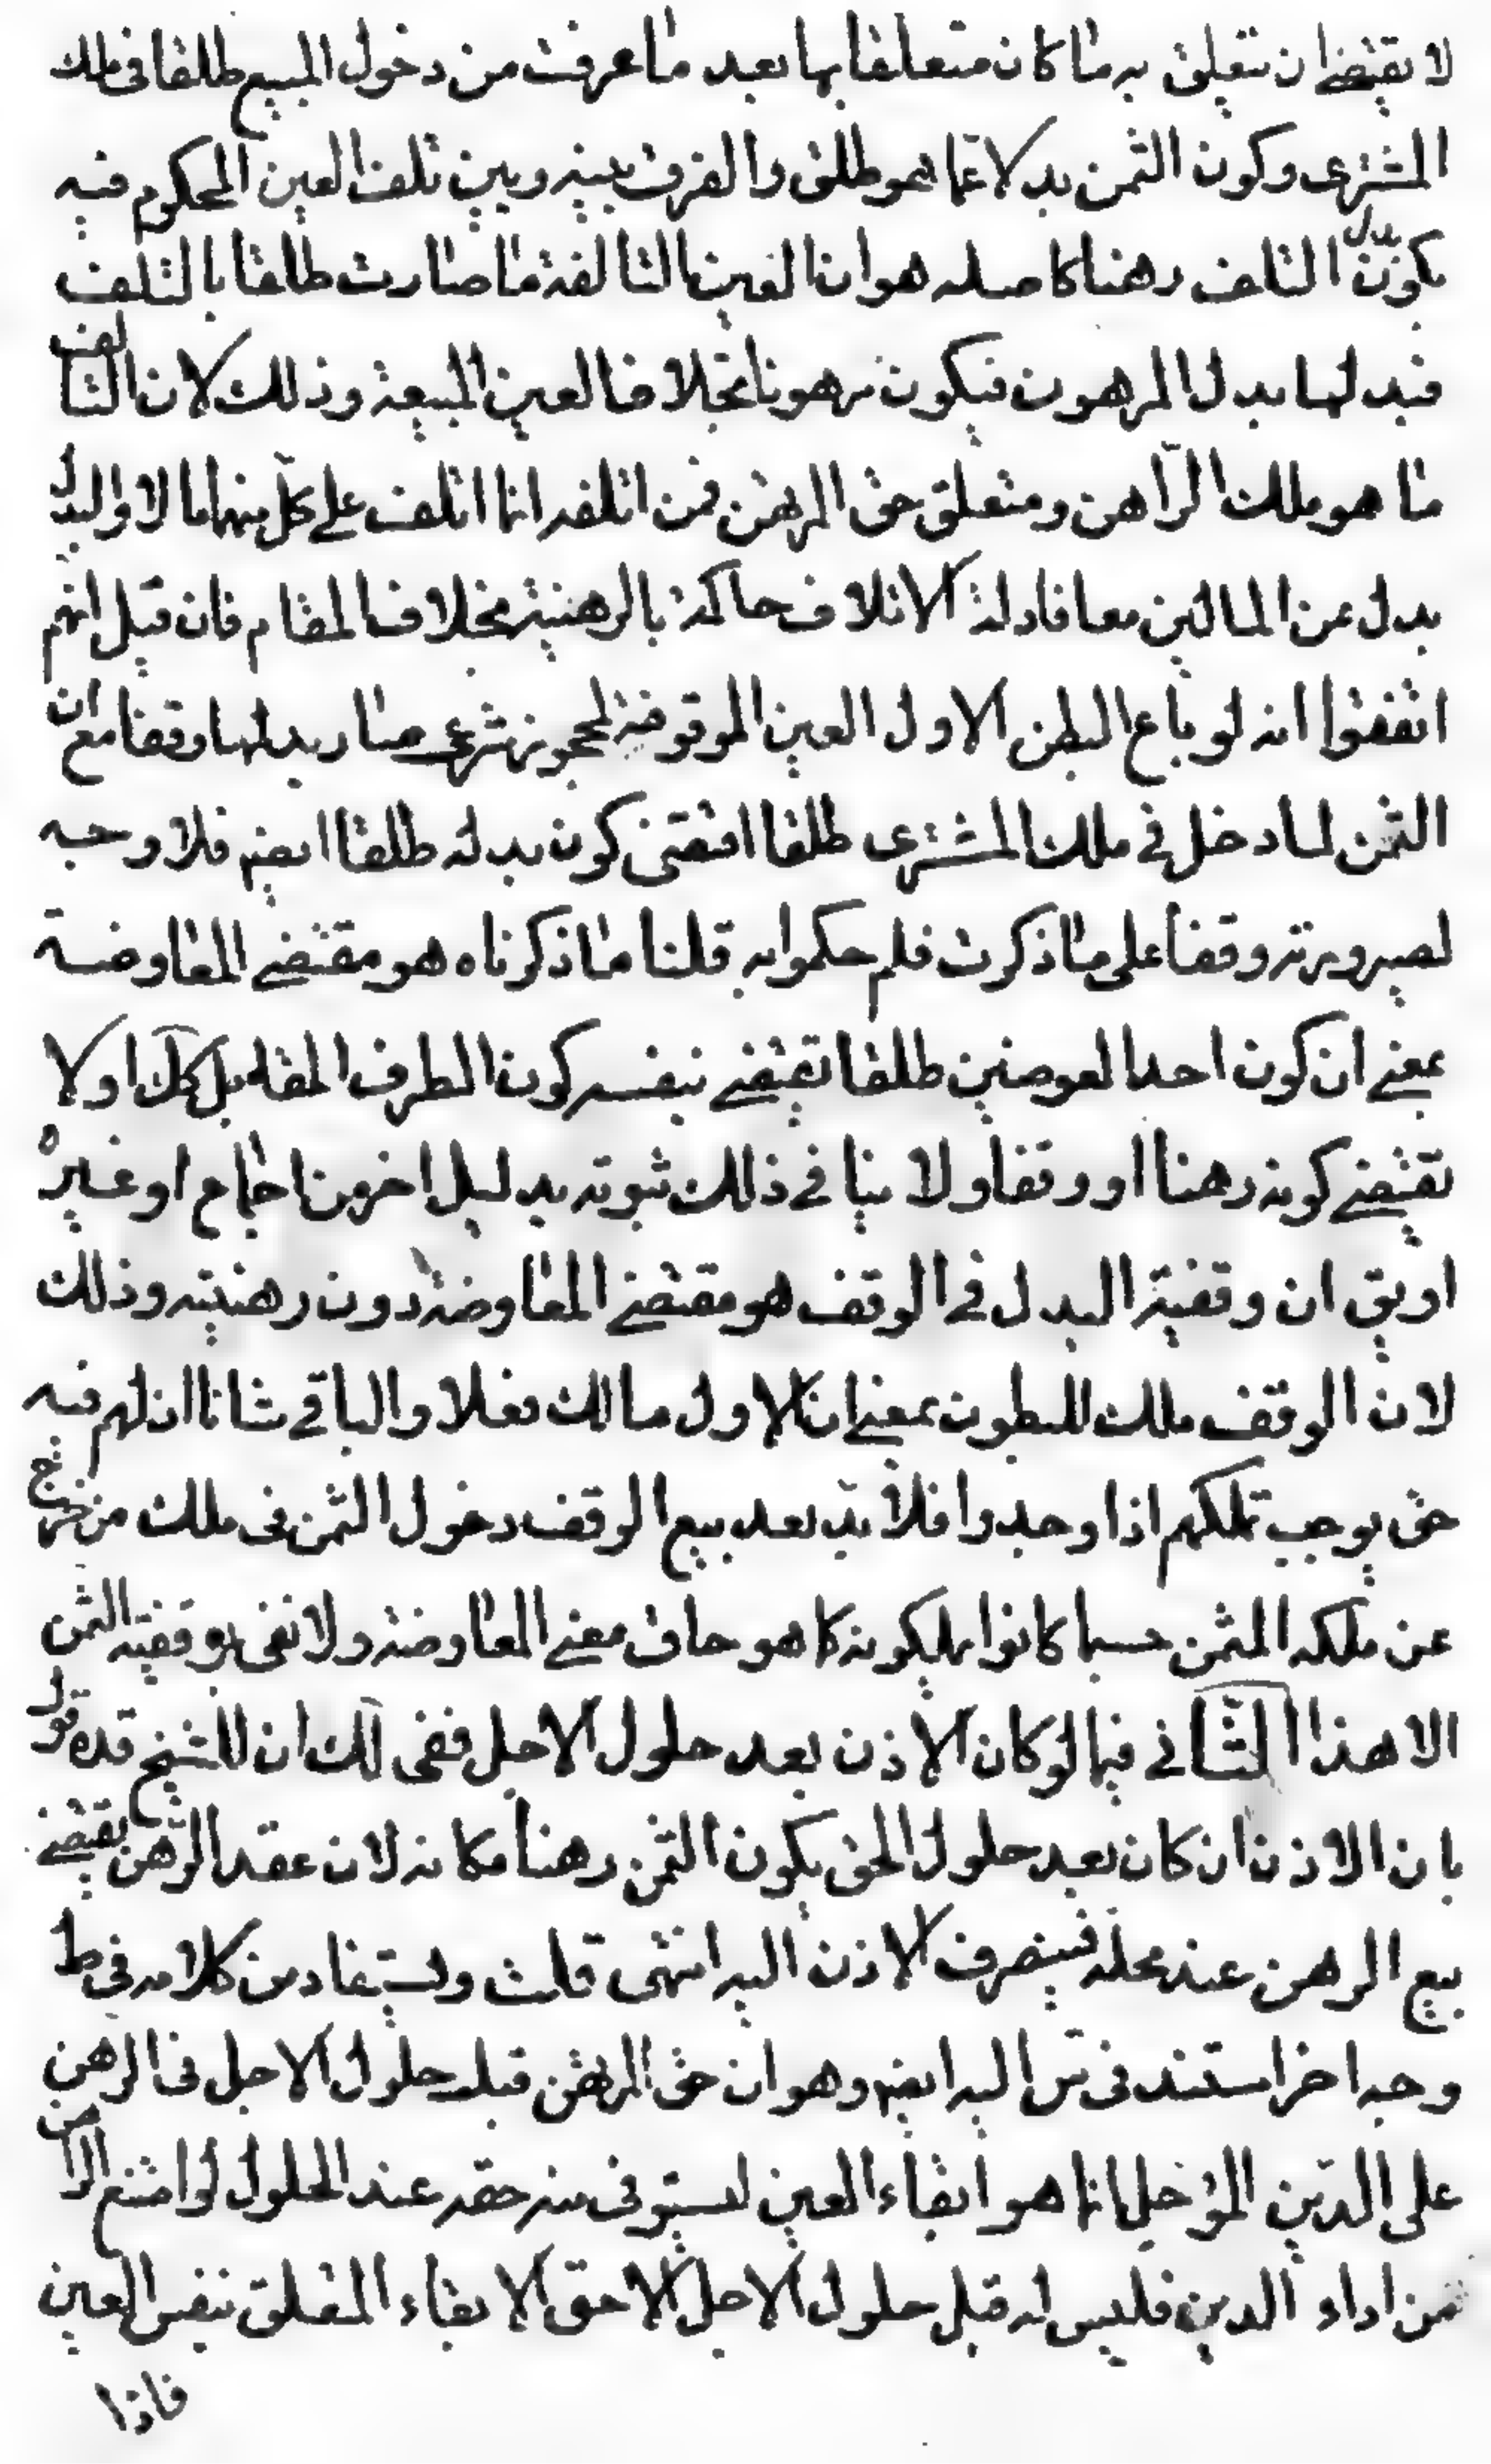 لا يقتضى ان يتعلق به ما كان متعلقا بها بعد ما عرفت من دخول المبيع طلقا فى ملك
المشترى وكون الثمن بدلا عما هو طلق والفرق بينه وبين تلف العين المحكوم فيه
بكون بدل التلف رهنا حاصله هو ان العين التالفة ما صارت طلقا بالتلف
فبدلها بدل المرهون فيكون مرهونا بخلاف العين المبيعة وذلك لان التالف
ما هو ملك الراهن ومتعلق حق المرتهن فمن اتلفه انما اتلف على كل منهما مالا والبدل
بدل عن المالين معا فادلة الاتلاف حاكمة بالرهنية بخلاف المقام فان قيل انهم
اتفقوا انه لو باع البطن الاول العين الموقوفة لمجوز شرعى صار بدلها وقفا مع ان
الثمن لما دخل فى ملك المشترى طلقا اقتضى كون بدله طلقا ايضا فلا وجه
لصيرورته وقفا على ما ذكرت فلم حكموا به قلنا ما ذكرناه هو مقتضى المعاوضة
بمعنى ان كون احد العوضين طلقا يقتضى بنفسه كون الطرف المقابل كك او لا
يقتضى كونه رهنا او وقفا ولا ينافى ذلك ثبوته بدليل اخر من اجماع او غيره
او يق ان وقفية البدل فى الوقف هو مقتضى المعاوضة دون رهنيته وذلك
لان الوقف ملك للبطون بمعنى ان الاول مالك فعلا والباقى شانا ان لهم فيه
حق يوجب تملكهم اذا وجدوا فلا بد بعد بيع الوقف دخول الثمن فى ملك من خرج
عن ملكه المثمن حسبما كانوا يملكونه كما هو حاق معنى المعاوضة ولا نعنى بوقفية الثمن
الا هذا الثانى فيما لو كان الاذن بعد حلول الاجل ففى لك ان للشيخ قده قول
بان الاذن ان كان بعد حلول الحق يكون الثمن رهنا مكانه لان عقد الرهن يقتضى
بيع الرهن عند محله فينصرف الاذن اليه انتهى قلت ويستفاد من كلامه فى ط
وجه اخر استند فى س اليه ايضا وهو ان حق المرتهن قبل حلول الاجل فى الرهن
على الدين المؤجل انما هو ابقاء العين ليستوفى منه حقه عند الحلول لو امتنع الراهن
من اداء الدين فليس له قبل حلول الاجل الا حق الابقاء المتعلق بنفس العين
فاذا